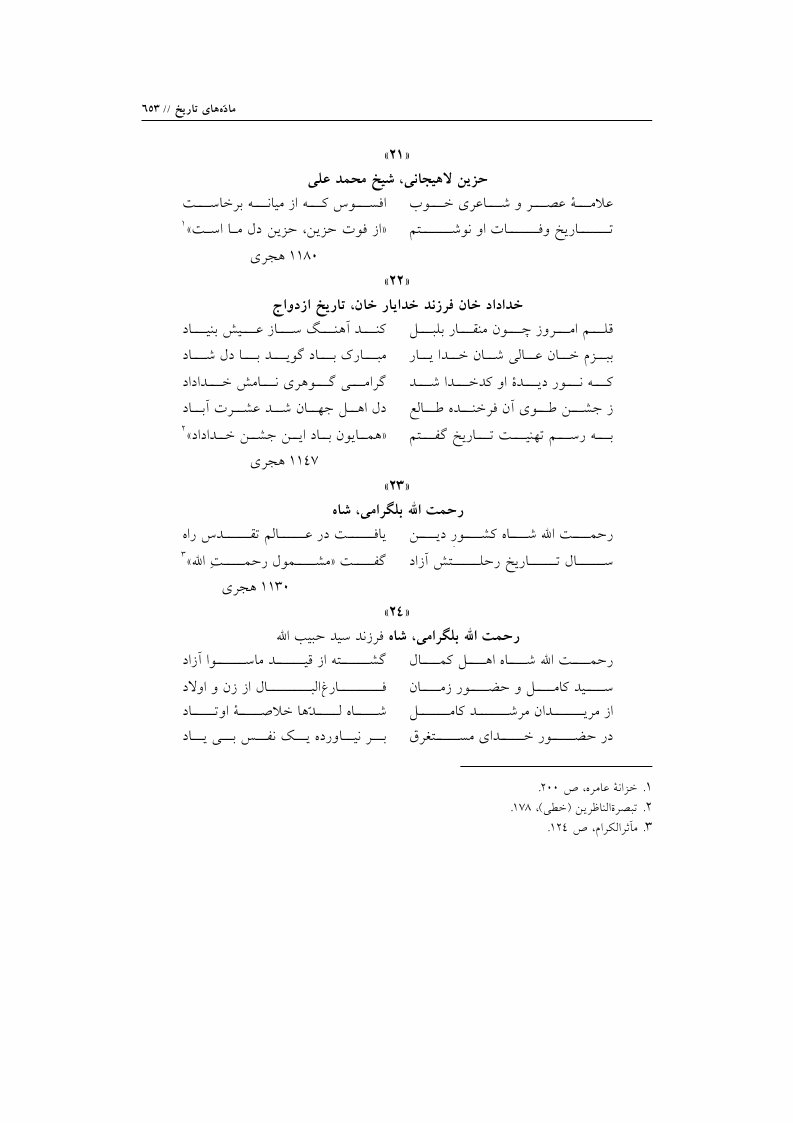 مادّه‌های تاریخ // ٦٥٣
«٢١»
حزین لاهیجانی، شیخ محمد علی
علامۀ عصر و شاعری خوب افسوس که از میانه برخاست
تاریخ وفات او نوشتم «از فوت حزین، حزین دل ما است»١
١١٨٠ هجری
«٢٢»
خداداد خان فرزند خدایار خان، تاریخ ازدواج
قلم امروز چون منقار بلبل کند آهنگ ساز عیش بنیاد
ببزم خان عالی شان خدا یار مبارک باد گوید با دل شاد
که نور دیدۀ او کدخدا شد گرامی گوهری نامش خداداد
ز جشن طوی آن فرخنده طالع دل اهل جهان شد عشرت آباد
به رسم تهنیت تاریخ گفتم «همایون باد این جشن خداداد»٢
١١٤٧ هجری
«٢٣»
رحمت الله بلگرامی، شاه
رحمت الله شاه کشورِ دین یافت در عالم تقدس راه
سال تاریخ رحلتش آزاد گفت «مشمول رحمتِ الله»٣
١١٣٠ هجری
«٢٤»
رحمت الله بلگرامی، شاه فرزند سید حبیب الله
رحمت الله شاه اهل کمال گشته از قید ماسوا آزاد
سید کامل و حضور زمان فارغ‌البال از زن و اولاد
از مریدان مرشد کامل شاه لدّها خلاصۀ اوتاد
در حضور خدای مستغرق بر نیاورده یک نفس بی یاد
١. خزانۀ عامره، ص ٢٠٠.
٢. تبصرةالناظرین (خطی)، ١٧٨.
٣. مآثرالکرام، ص ١٢٤.